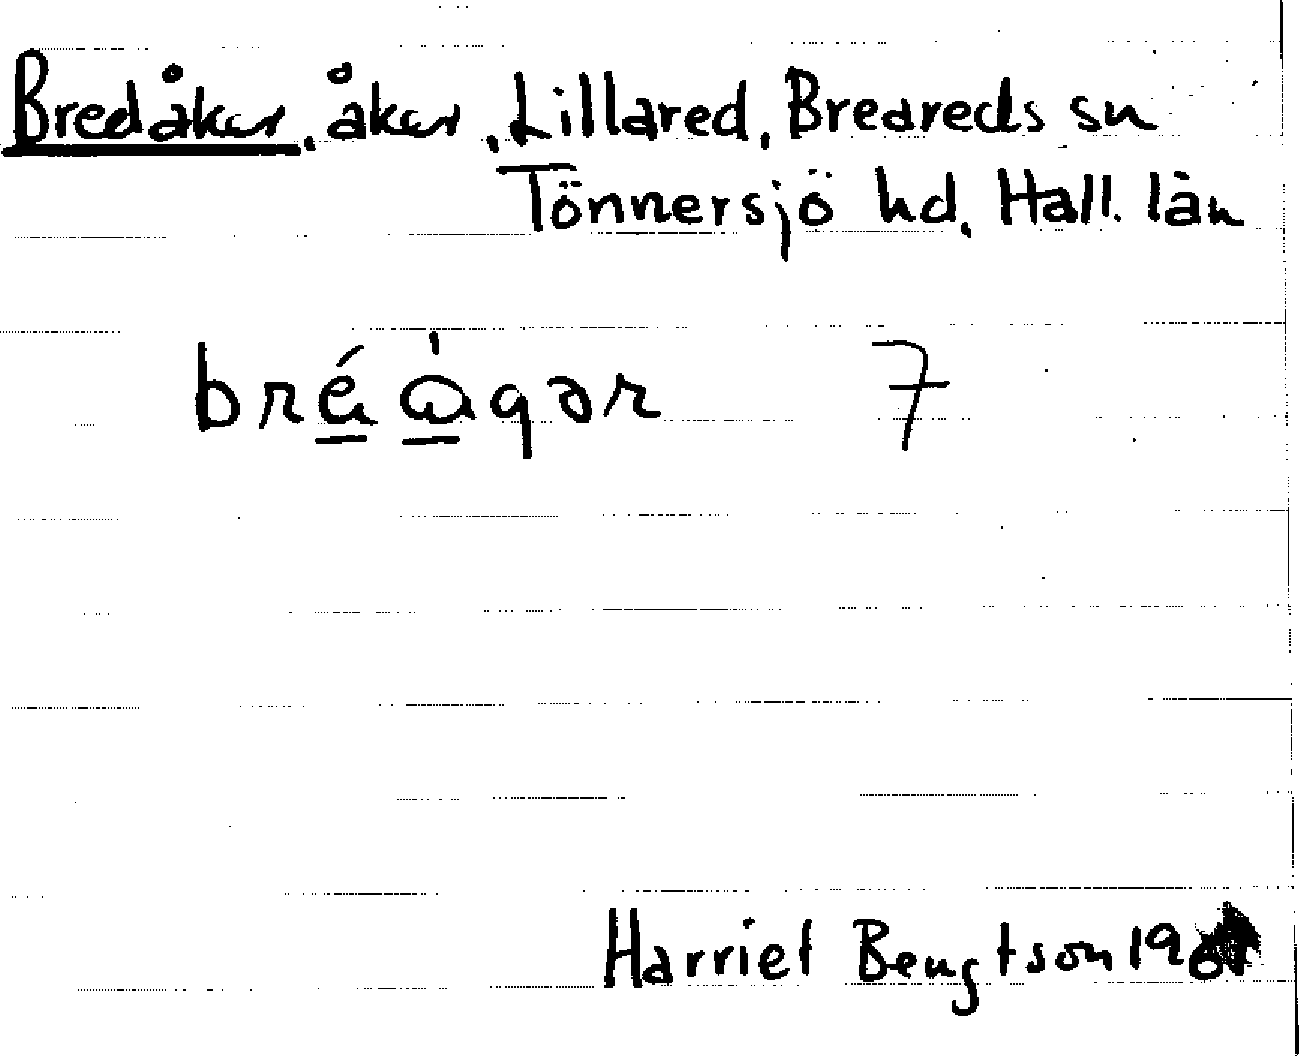 Bredåker, åker, Lillared, Breareds sn
Tönnersjö hd, Hall. län
bréàgər 7
Harriet Bengtson